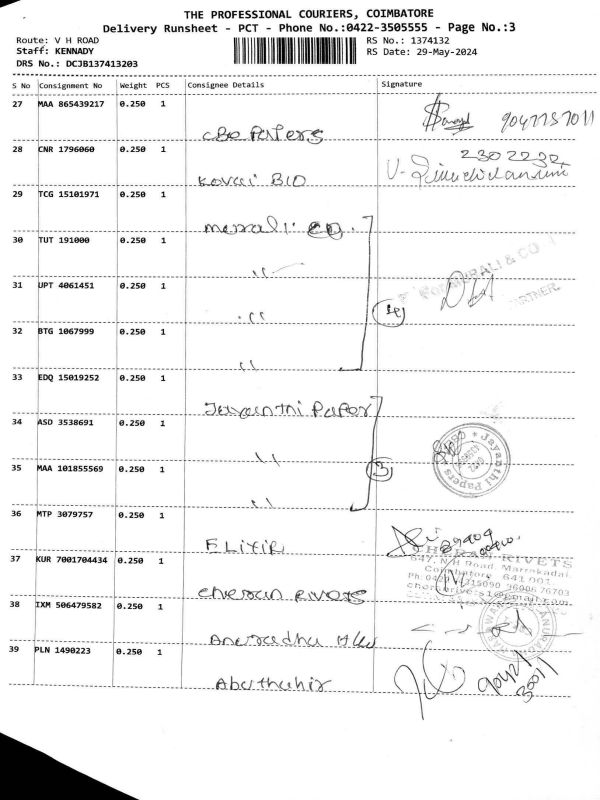 THE PROFESSIONAL COURIERS, COIMBATORE
Delivery Runsheet - PCT - Phone No.:0422-3505555 - Page No.:3
Route: V H ROAD
RS No.: 1374132
Staff: KENNADY
RS Date: 29-May-2024
DRS No.: DCJB137413203
S No Consignment No Weight PCS Consignee Details Signature
27 MAA 865439217 0.250 1
CBO Papers
28 CNR 1796060 0.250 1
2302232
Kovai BIO
29 TCG 15101971 0.250 1
30 TUT 191000 0.250 1
"
31 UPT 4061451 0.250 1
"
4
32 BTG 1067999 0.250 1
"
33 EDQ 15019252 0.250 1
Jayanthi Paper
34 ASD 3538691 0.250 1
"
Jayanthi Papers
35 MAA 101855569 0.250 1
3
"
36 MTP 3079757 0.250 1
Elixir
37 KUR 7001704434 0.250 1
RIVETS
N H Road, Marrakadai,
Coimbatore 641 001
Cheran Rivets
38 IXM 506479582 0.250 1
39 PLN 1490223 0.250 1
Abuthahir